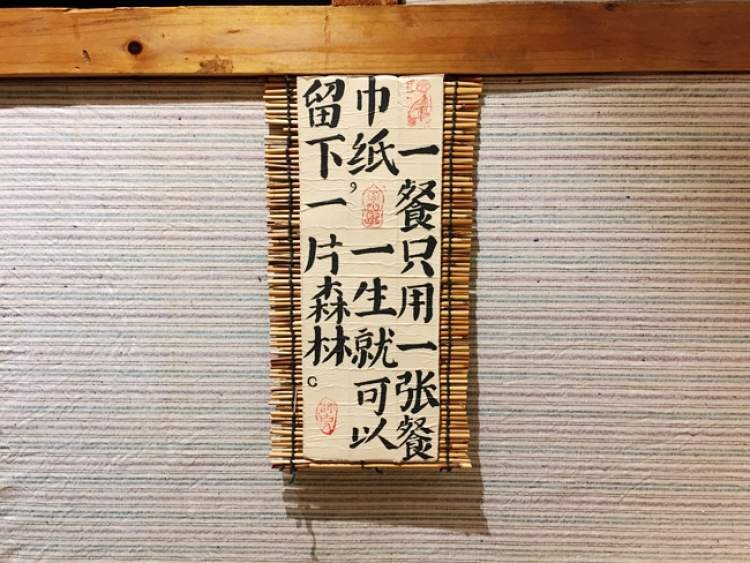 一餐只用一张餐
巾纸，一生就可以
留下一片森林。